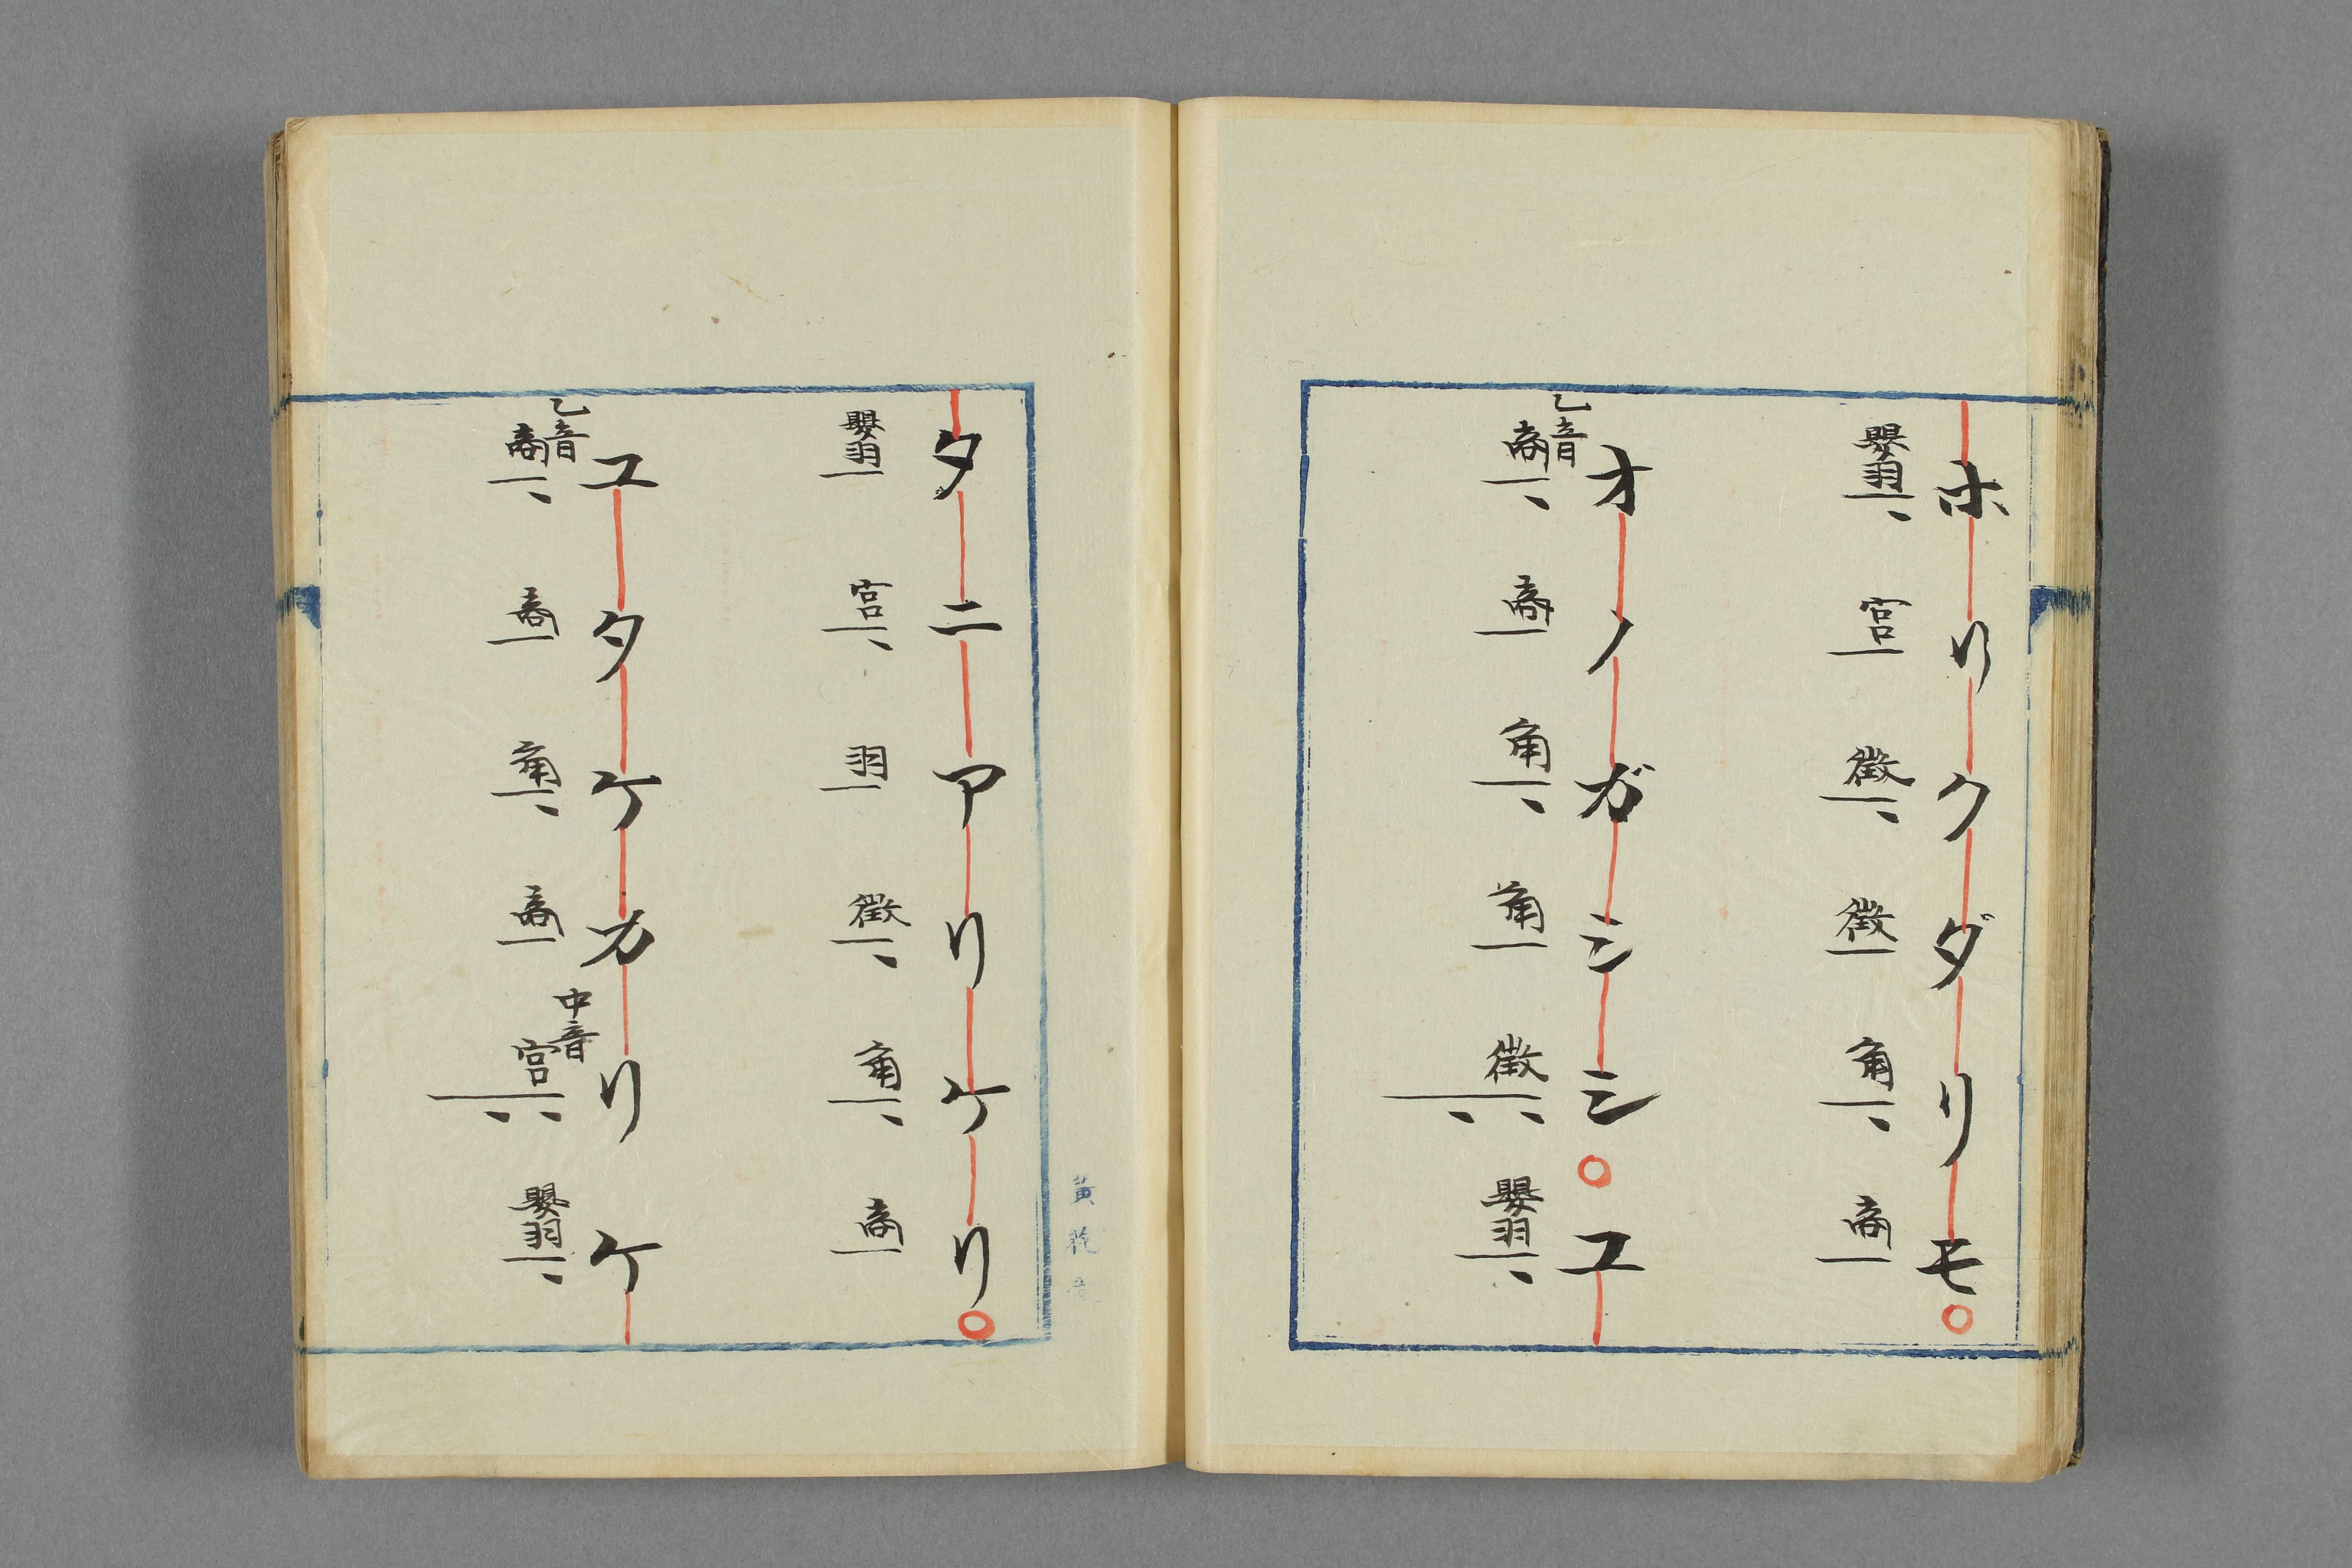 ホリクダリモ
嬰羽 宮 徴 徴 角 商
オノガシシユ
乙音
商 商 角 角 徴 嬰羽
タニアリケリ
嬰羽 宮 羽 徴 角 商
ユタケカリケ
乙音 中音
商 商 角 商 宮 嬰羽